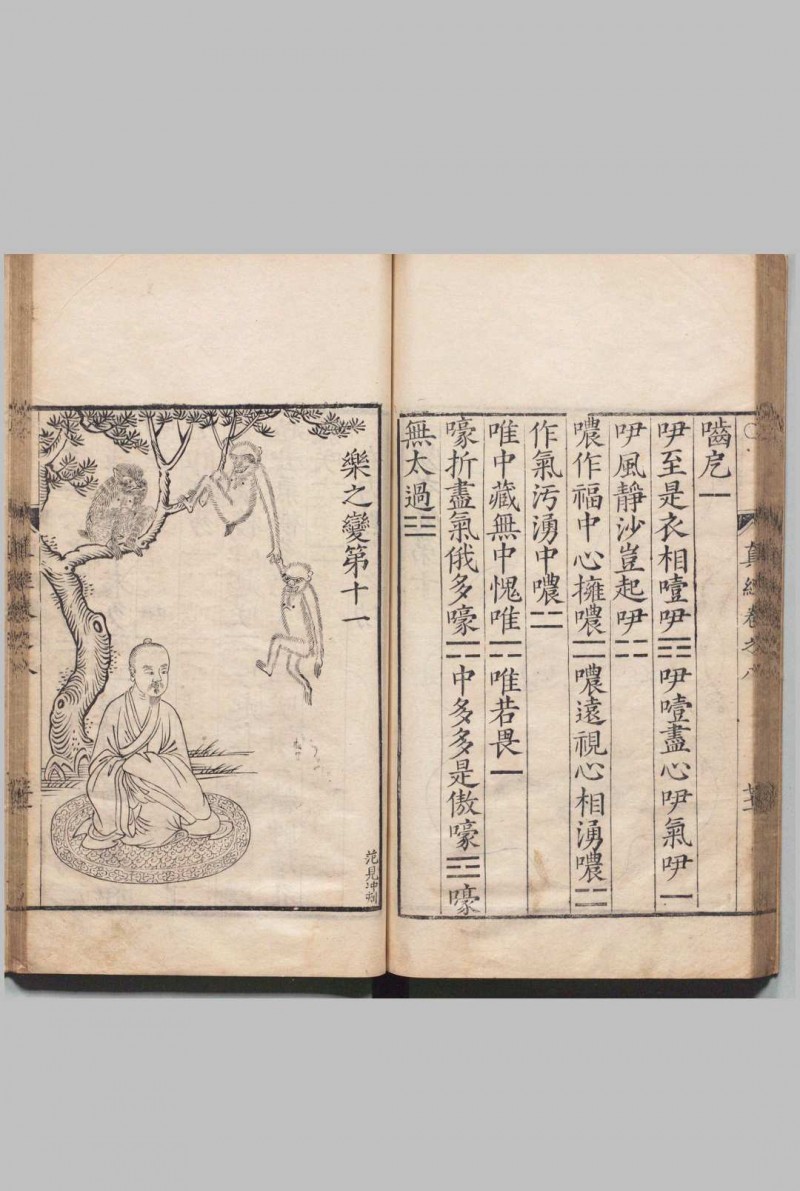 噛戹⚊
吚至是衣相噎吚☲吚噎盡心吚氣吚⚊
吚風靜沙豈起吚⚏
噥作福中心擁噥⚌噥遠視心相湧噥⚌
作氣汚湧中噥⚍
唯中藏無中愧唯⚎唯若畏⚊
嚎折盡氣俄多嚎⚎中多多是傲嚎☲嚎
無太過☲
真經卷之八
樂之變第十一
范見冲